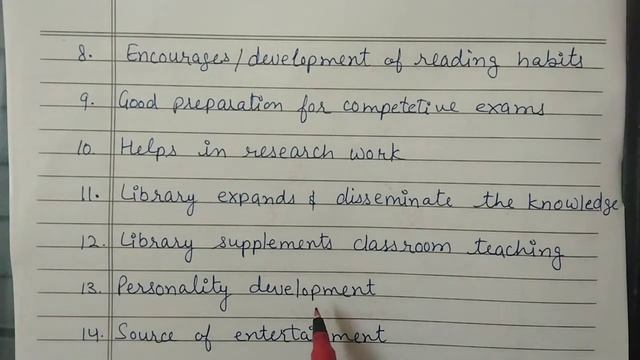 8. Encourages/development of reading habits
9. Good preparation for competetive exams
10. Helps in research work
11. Library expands & disseminate the knowledge
12. Library supplements classroom teaching
13. Personality development
14. Source of entertainment